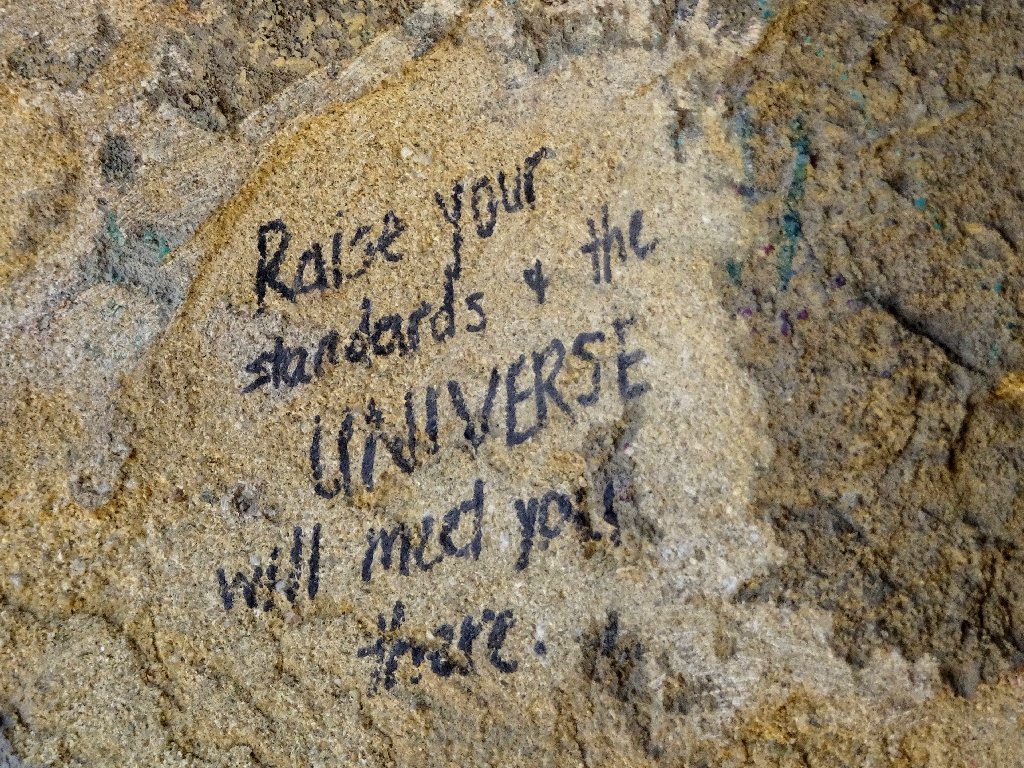 Raise your
standards & the
UNIVERSE
will meet you
there.